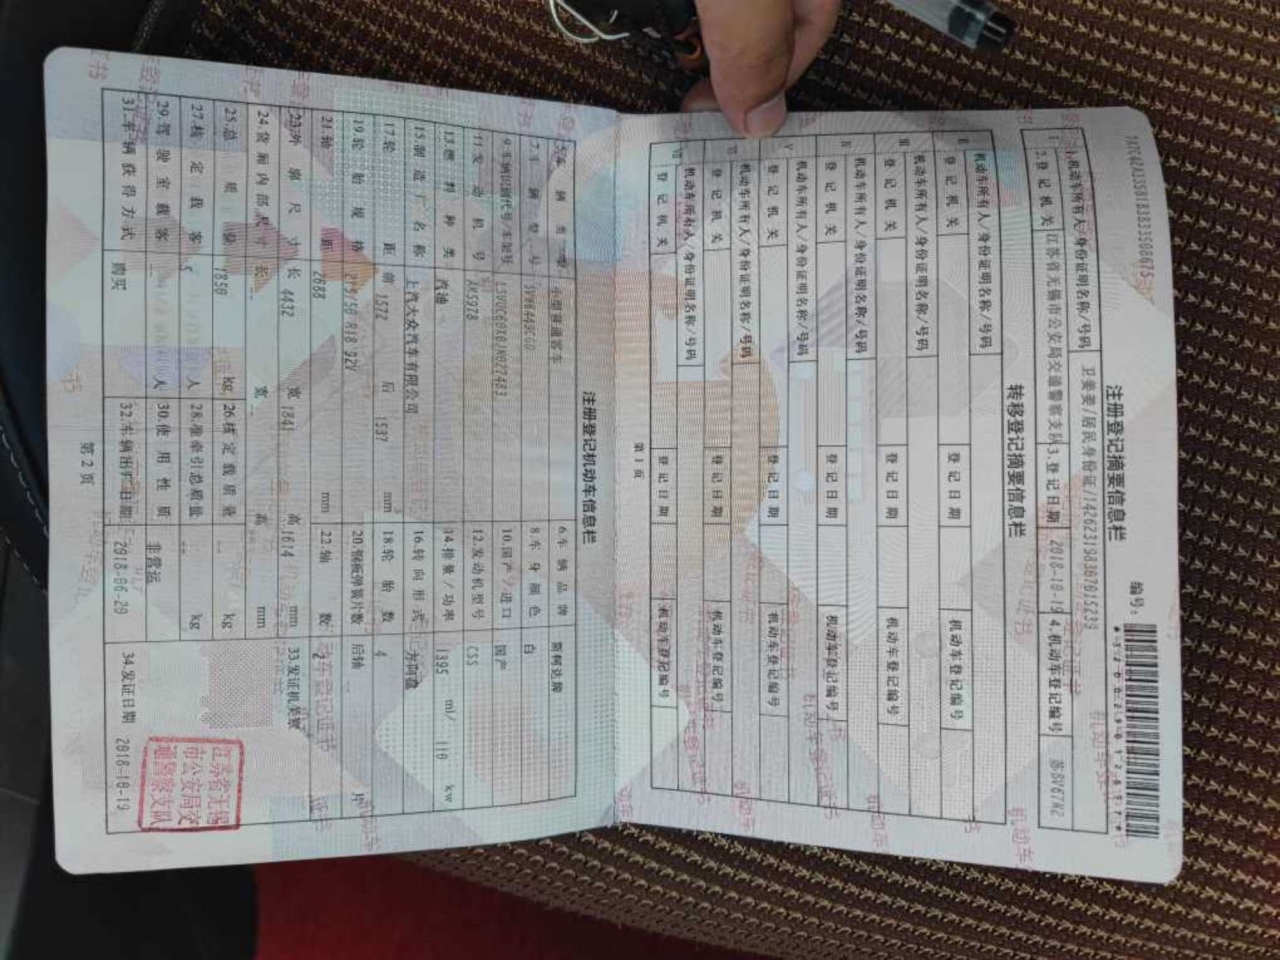 注册登记摘要信息栏
编号:
1.机动车所有人/身份证明名称/号码 卫姜姜/居民身份证/142623198307015233
2.登记机关 江苏省无锡市公安局交通警察支队 3.登记日期 2018-10-19 4.机动车登记编号
转移登记摘要信息栏
机动车所有人/身份证明名称/号码
登记机关 登记日期 机动车登记编号
机动车所有人/身份证明名称/号码
登记机关 登记日期 机动车登记编号
机动车所有人/身份证明名称/号码
登记机关 登记日期 机动车登记编号
机动车所有人/身份证明名称/号码
登记机关 登记日期 机动车登记编号
机动车所有人/身份证明名称/号码
登记机关 登记日期 机动车登记编号
机动车所有人/身份证明名称/号码
登记机关 登记日期 机动车登记编号
第 1 页
注册登记机动车信息栏
5.车辆类型 小型普通客车 6.车辆品牌 斯柯达牌
7.车辆型号 8.车身颜色 白
9.车辆识别代号/车架号 10.国产/进口 国产
11.发动机号 12.发动机型号 CSS
13.燃料种类 汽油 14.排量/功率 1395 ml/ 110 kw
15.制造厂名称 上汽大众汽车有限公司 16.转向形式 方向盘
17.轮距 前 1572 后 1537 mm 18.轮胎数 4
19.轮胎规格 215/50 R18 92V 20.钢板弹簧片数 后轴 片
21.轴距 2688 mm 22.轴数 2
23.外廓尺寸 长 4432 宽 1841 高 1614 mm 33.发证机关章
24.货厢内部尺寸 长 宽 高 mm
25.总质量 1850 kg 26.核定载质量 kg
27.核定载客 5 人 28.准牵引总质量 kg
29.驾驶室载客 人 30.使用性质 非营运
31.车辆获得方式 购买 32.车辆出厂日期 2018-06-29 34.发证日期 2018-10-19
江苏省无锡
市公安局交
通警察支队
第 2 页